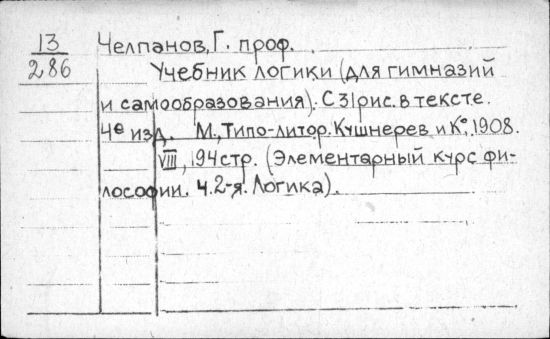 13 Челпанов, Г. проф.
286 Учебник логики (для гимназий
и самообразования). С 31 рис. в тексте.
4е изд. М., Типо-литор. Кушнерев и К°, 1908.
VIII, 194 стр. (Элементарный курс фи-
лософии. Ч. 2-я. Логика).